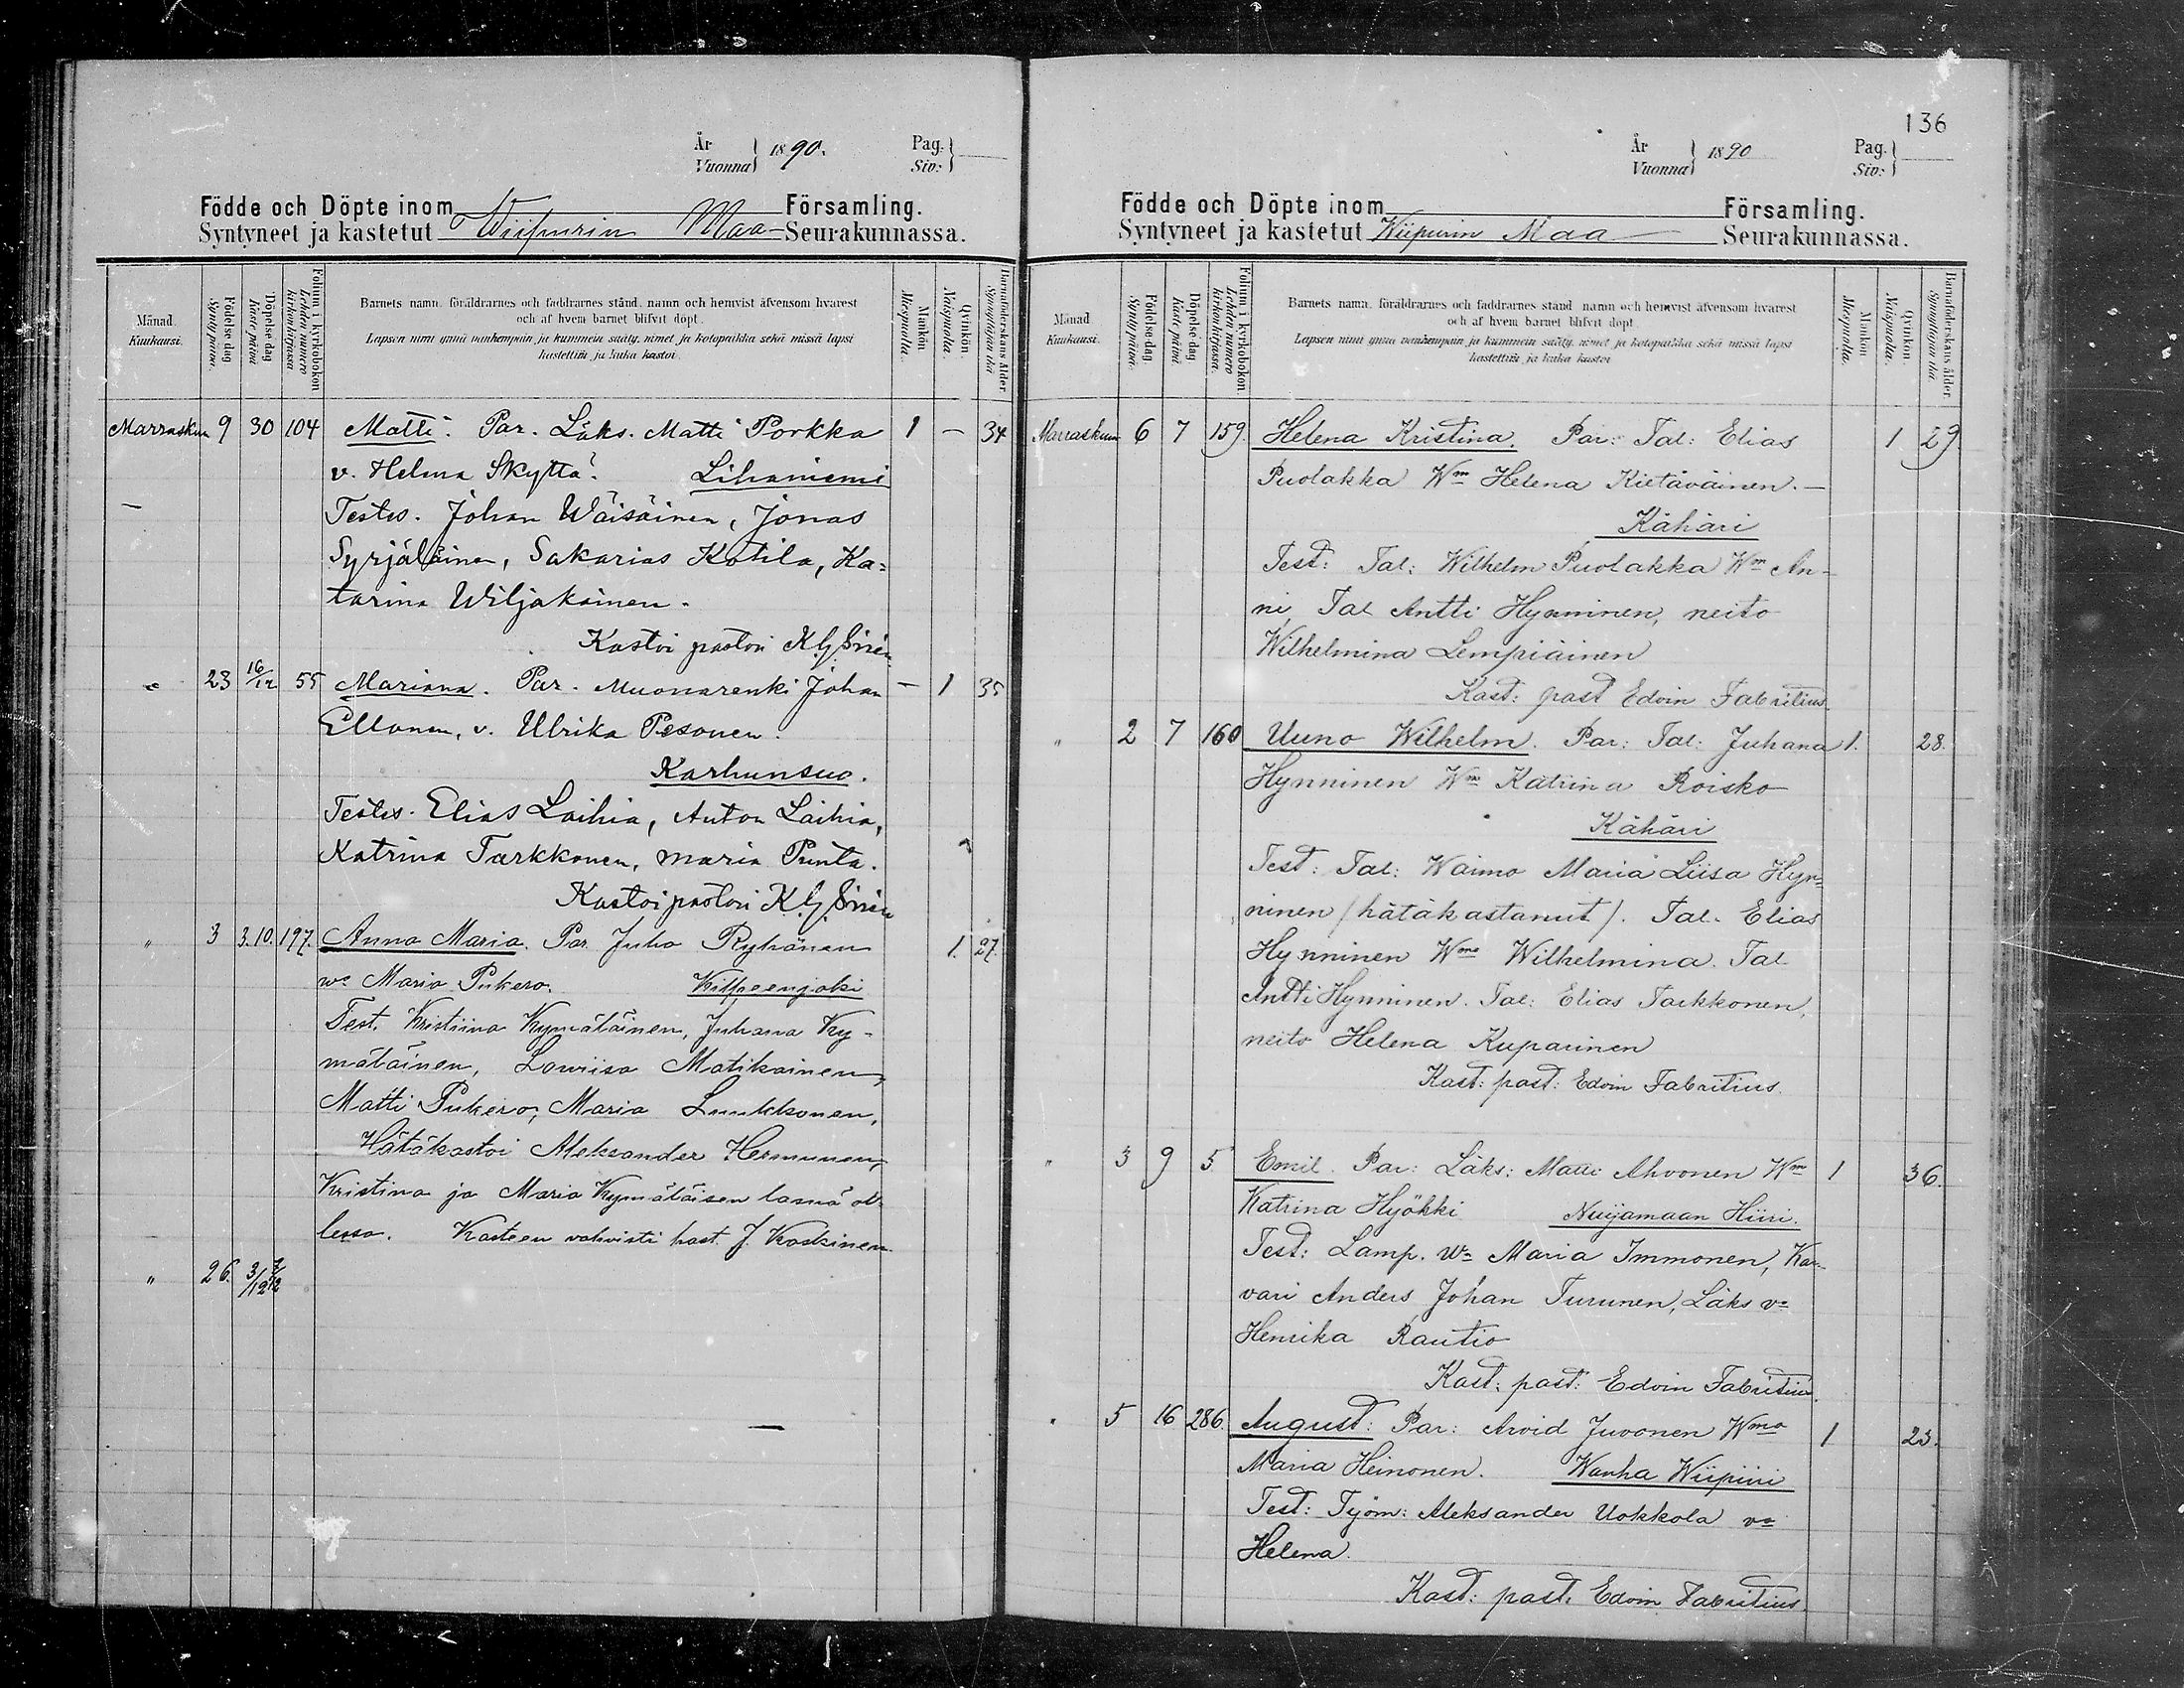 År
Vuonna 1890.
Pag.
Siv:
Födde och Döpte inom Församling.
Syntyneet ja kastetut Wiipurin Maa- Seurakunnassa.
Månad.
Kuukausi.
Födelse dag
Syntypäivä.
Döpelse dag
Kaste päivä
Folium i kyrkoboken
Lehden numero kirkonkirjassa
Barnets namn, föräldrarnes och faddrarnes stånd, namn och hemvist äfvensom hvarest
och af hvem barnet blifvit döpt.
Lapsen nimi ynnä vanhempain ja kummein sääty, nimet ja kotopaikka sekä missä lapsi
kastettiin ja kuka kastoi.
Mankön
Miespuolia.
Qvinkön
Naispuolia.
Barnaföderskans ålder
Synnyttäjän ikä
Marraskuu 9 30 104 Matti. Par. Läks. Matti Porkka 1 – 34
v. Helena Skyttä. Lihaniemi
Testes. Johan Wäisäinen, Jonas
Syrjäläinen, Sakarias Kotila, Ka=
tarina Wiljakainen.
Kastoi pastori K.G. Sirén
" 23 16/12 55 Mariana. Par. Muonarenki Johan – 1 35
Ellonen, v. Ulrika Pesonen.
Karhunsuo.
Testes. Elias Laihia, Anton Laihia,
Katrina Tarkkonen, Maria Punta.
Kastoi pastori K.G. Sirén
" 3 3.10. 197. Anna Maria. Par. Juho Ryhänen 1. 27.
wo Maria Pukero. Kilpeenjoki
Test. Kristiina Kymäläinen, Juhana Ky-
mäläinen, Lowiisa Matikainen,
Matti Pukero, Maria Luukkonen,
Hätäkastoi Aleksander Hermunen,
Kristina ja Maria Kymäläisen läsnä ol-
lessa. Kasteen vahvisti past. J. Koskinen.
" 26. 3/12
136
År
Vuonna 1890
Pag.
Siv:
Födde och Döpte inom Församling.
Syntyneet ja kastetut Wiipurin Maa Seurakunnassa.
Månad
Kuukausi.
Födelse dag
Syntypäivä.
Döpelse dag
Kaste päivä
Folium i kyrkoboken.
Lehden numero kirkonkirjassa.
Barnets namn, föräldrarnes och faddrarnes stånd namn och hemvist äfvensom hvarest
och af hvem barnet blifvit döpt
Lapsen nimi ynnä vanhempain ja kummein sääty, nimet ja kotopaikka sekä missä lapsi
kastettiin ja kuka kastoi
Mankön
Miespuolia.
Qvinkön.
Naispuolia.
Barnaföderskans ålder.
Synnyttäjän ikä
Marraskuu 6 7 159. Helena Kristina. Par: Tal: Elias 1 29.
Puolakka Wm Helena Kietäväinen. –
Kähäri
Test: Tal: Wilhelm Puolakka Wm An-
ni, Tal Antti Hynninen, neito
Wilhelmina Lempiäinen
Kast: past Edvin Fabritius
" 2 7 160 Uuno Wilhelm. Par: Tal: Juhana 1. 28.
Hynninen Wm Katrina Roisko
Kähäri
Test: Tal: Waimo Maria Liisa Hyn=
ninen (hätäkastanut). Tal. Elias
Hynninen Wmo Wilhelmina. Tal
Antti Hynninen. Tal: Elias Tarkkonen,
neito Helena Kuparinen
Kast: past: Edvin Fabritius.
" 3 9 5 Emil. Par: Läks: Matti Ahvonen Wm 1 36.
Katrina Hyökki Nuijamaan Hiiri.
Test: Lamp. Wo Maria Immonen, Kar-
vari Anders Johan Turunen, Läks vo
Henrika Rautio
Kast: past: Edvin Fabritius
" 5 16 286. August: Par: Arvid Juvonen Wmo 1 23.
Maria Heinonen. Wanha Wiipuri
Test: Työm: Aleksander Uokkola vo
Helena.
Kast: past. Edvin Fabritius.